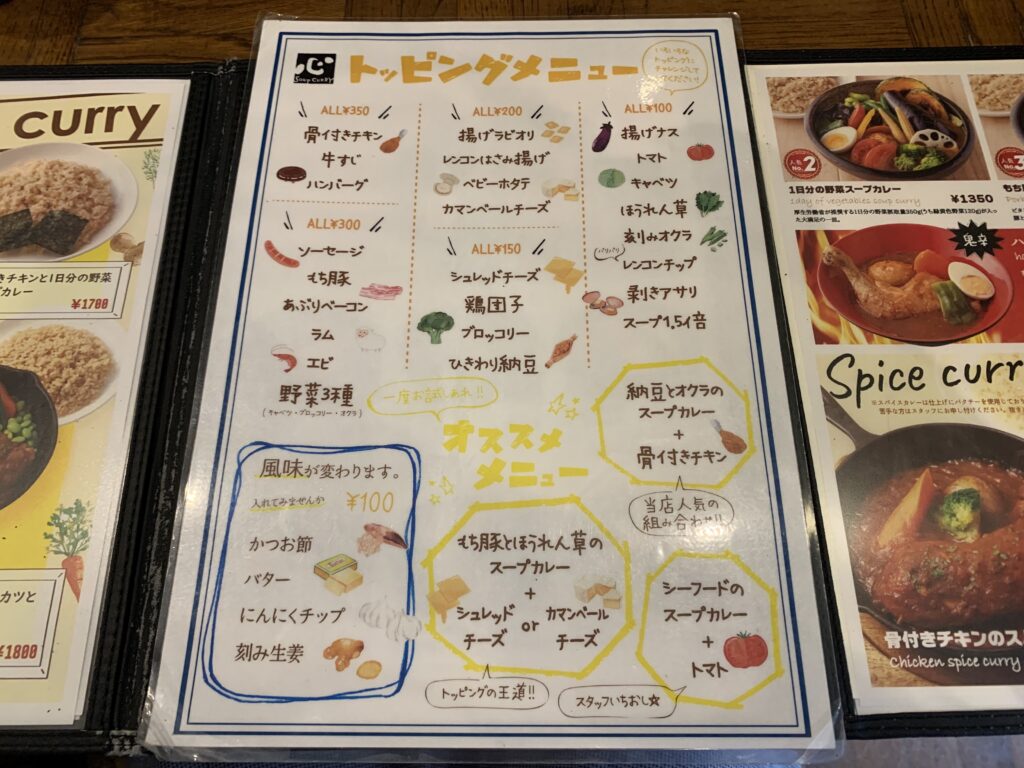 curry
きチキンと1日分の野菜
プカレー
¥1700
カツと
¥1800
SOUP CURRY
トッピングメニュー
いろいろな
トッピングに
チャレンジして
ください!
ALL¥350
骨付きチキン
牛すじ
ハンバーグ
ALL¥300
ソーセージ
もち豚
あぶりベーコン
ラム
エビ
野菜3種
(キャベツ・ブロッコリー・オクラ)
ALL¥200
揚げラビオリ
レンコンはさみ揚げ
ベビーホタテ
カマンベールチーズ
ALL¥150
シュレッドチーズ
鶏団子
ブロッコリー
ひきわり納豆
ALL¥100
揚げナス
トマト
キャベツ
ほうれん草
刻みオクラ
パリパリ
レンコンチップ
剥きアサリ
スープ1,5倍
一度お試しあれ!!
オススメ
メニュー
風味が変わります。
入れてみませんか
¥100
かつお節
バター
にんにくチップ
刻み生姜
納豆とオクラの
スープカレー
+
骨付きチキン
当店人気の
組み合わせ!!
もち豚とほうれん草の
スープカレー
+
シュレッド
チーズ
or
カマンベール
チーズ
トッピングの王道!!
シーフードの
スープカレー
+
トマト
スタッフいちおし☆
人気
NO.2
1日分の野菜スープカレー
1day of vegetables soup curry
¥1350
厚生労働省が推奨する1日分の野菜摂取量350g(うち緑黄色野菜120g)が入っ
た大満足の一皿。
人気
NO.3
もち
Pork
鬼辛
ハ
ho
Spice curr
※スパイスカレーは仕上げにパクチーを使用してお
苦手な方はスタッフにお申し付けください。
骨付きチキンのス
Chicken spice curry